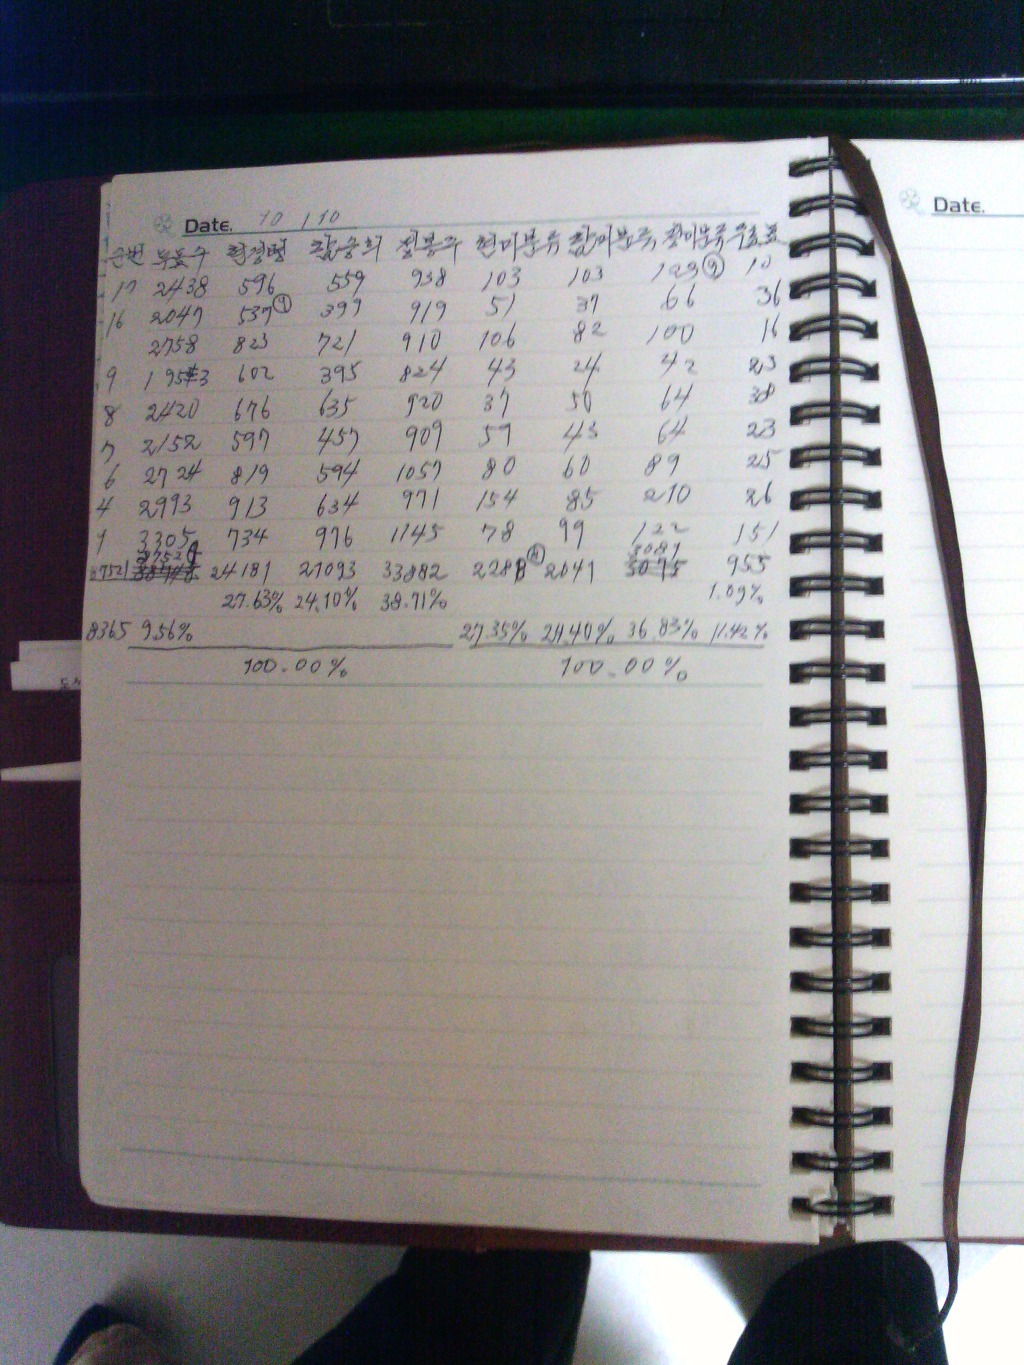 Date. 10 / 10
순번 투표수 현경병 함승희 정봉주 현미분류 함미분류 정미분류 무효표
17 2438 596 559 938 103 103 123 ⑨ 10
16 2047 537 ① 397 919 51 37 66 36
2758 823 721 910 106 82 100 16
9 1953 602 395 824 43 24 42 23
8 2420 676 635 920 37 50 64 38
7 2152 597 457 909 59 43 64 23
6 2724 819 594 1057 80 60 89 25
4 2993 913 634 971 154 85 210 26
1 3305 734 976 1145 78 99 122 151
3081
87521 24181 21093 33882 228 2041 3075 955
27.63% 24.10% 38.71% 1.09%
8365 9.56% 27.35% 24.40% 36.83% 11.42%
100.00% 100.00%
Date.